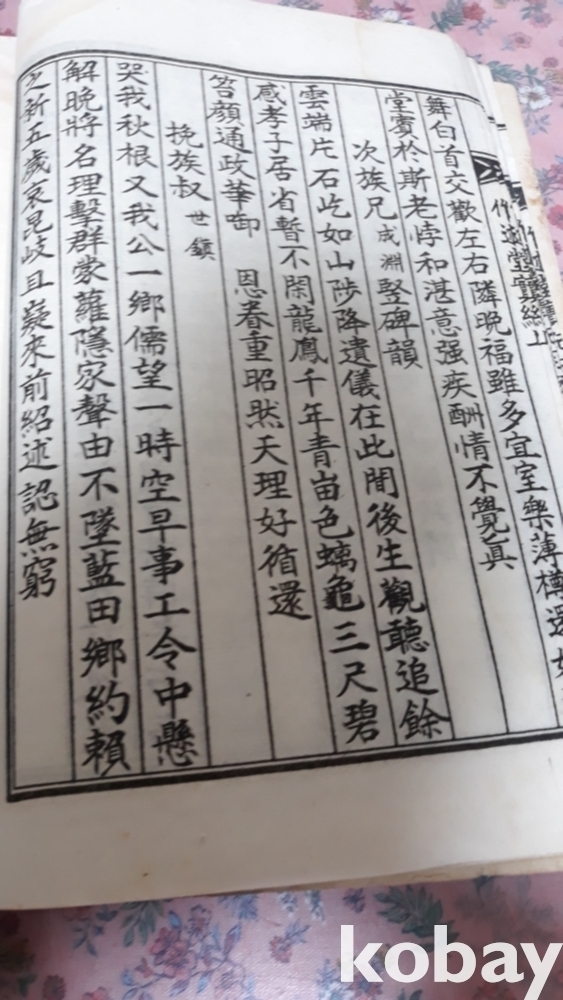 舞白首交歡左右隣晩福雖多宜室樂薄樽還
堂賓於斯老悖和湛意强疾酬情不覺眞
次族兄成淵竪碑韻
雲端片石屹如山陟降遺儀在此間後生觀聽追餘
感孝子居省暫不閑龍鳳千年青苗色螭龜三尺碧
笞顔通政華啣 恩眷重昭然天理好循還
挽族叔世鎭
哭我秋根又我公一鄉儒望一時空早事工令中懸
解晩將名理擊群蒙蘿隱家聲由不墜藍田鄉約賴
之新五歲哀昆岐且嶷來前紹述認無窮
kobay